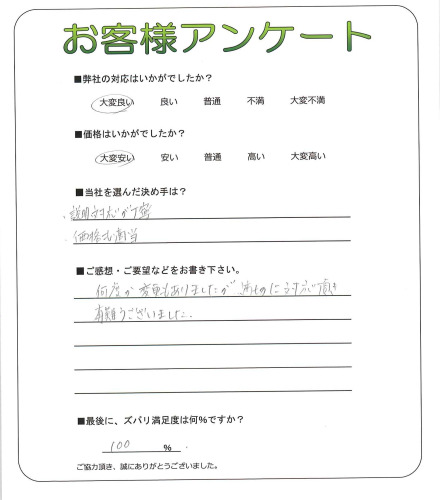 お客様アンケート
■弊社の対応はいかがでしたか?
大変良い 良い 普通 不満 大変不満
■価格はいかがでしたか?
大変安い 安い 普通 高い 大変高い
■当社を選んだ決め手は?
・説明対応が丁寧
・価格も適当
■ご感想・ご要望などをお書き下さい。
何度か変更もありましたが に対応頂き
有難うございました。
■最後に、ズバリ満足度は何%ですか?
100 %
ご協力頂き、誠にありがとうございました。